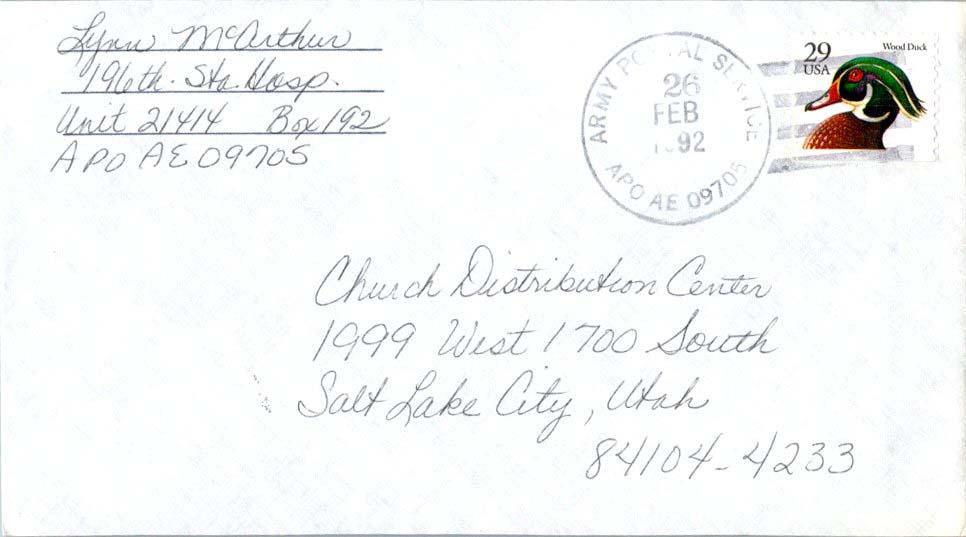 Lynn McArthur
196th. Sta. Hosp.
Unit 21414 Box 192
APO AE 09705
ARMY POSTAL SERVICE
26
FEB
1992
APO AE 09705
29
USA
Wood Duck
Church Distribution Center
1999 West 1700 South
Salt Lake City, Utah
84104-4233